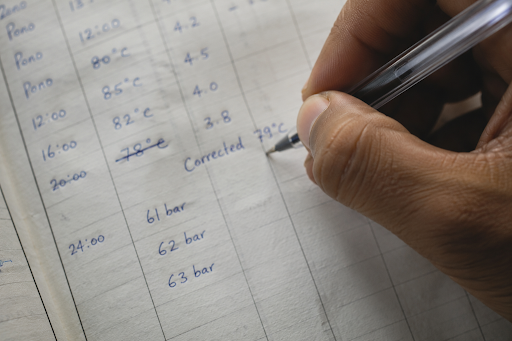 Pono
Pono 12:00
Pono 80°C 4.2
12:00 85°C 4.5
16:00 82°C 4.0
20:00 78°C 3.8
Corrected 79°C
24:00 61 bar
62 bar
63 bar